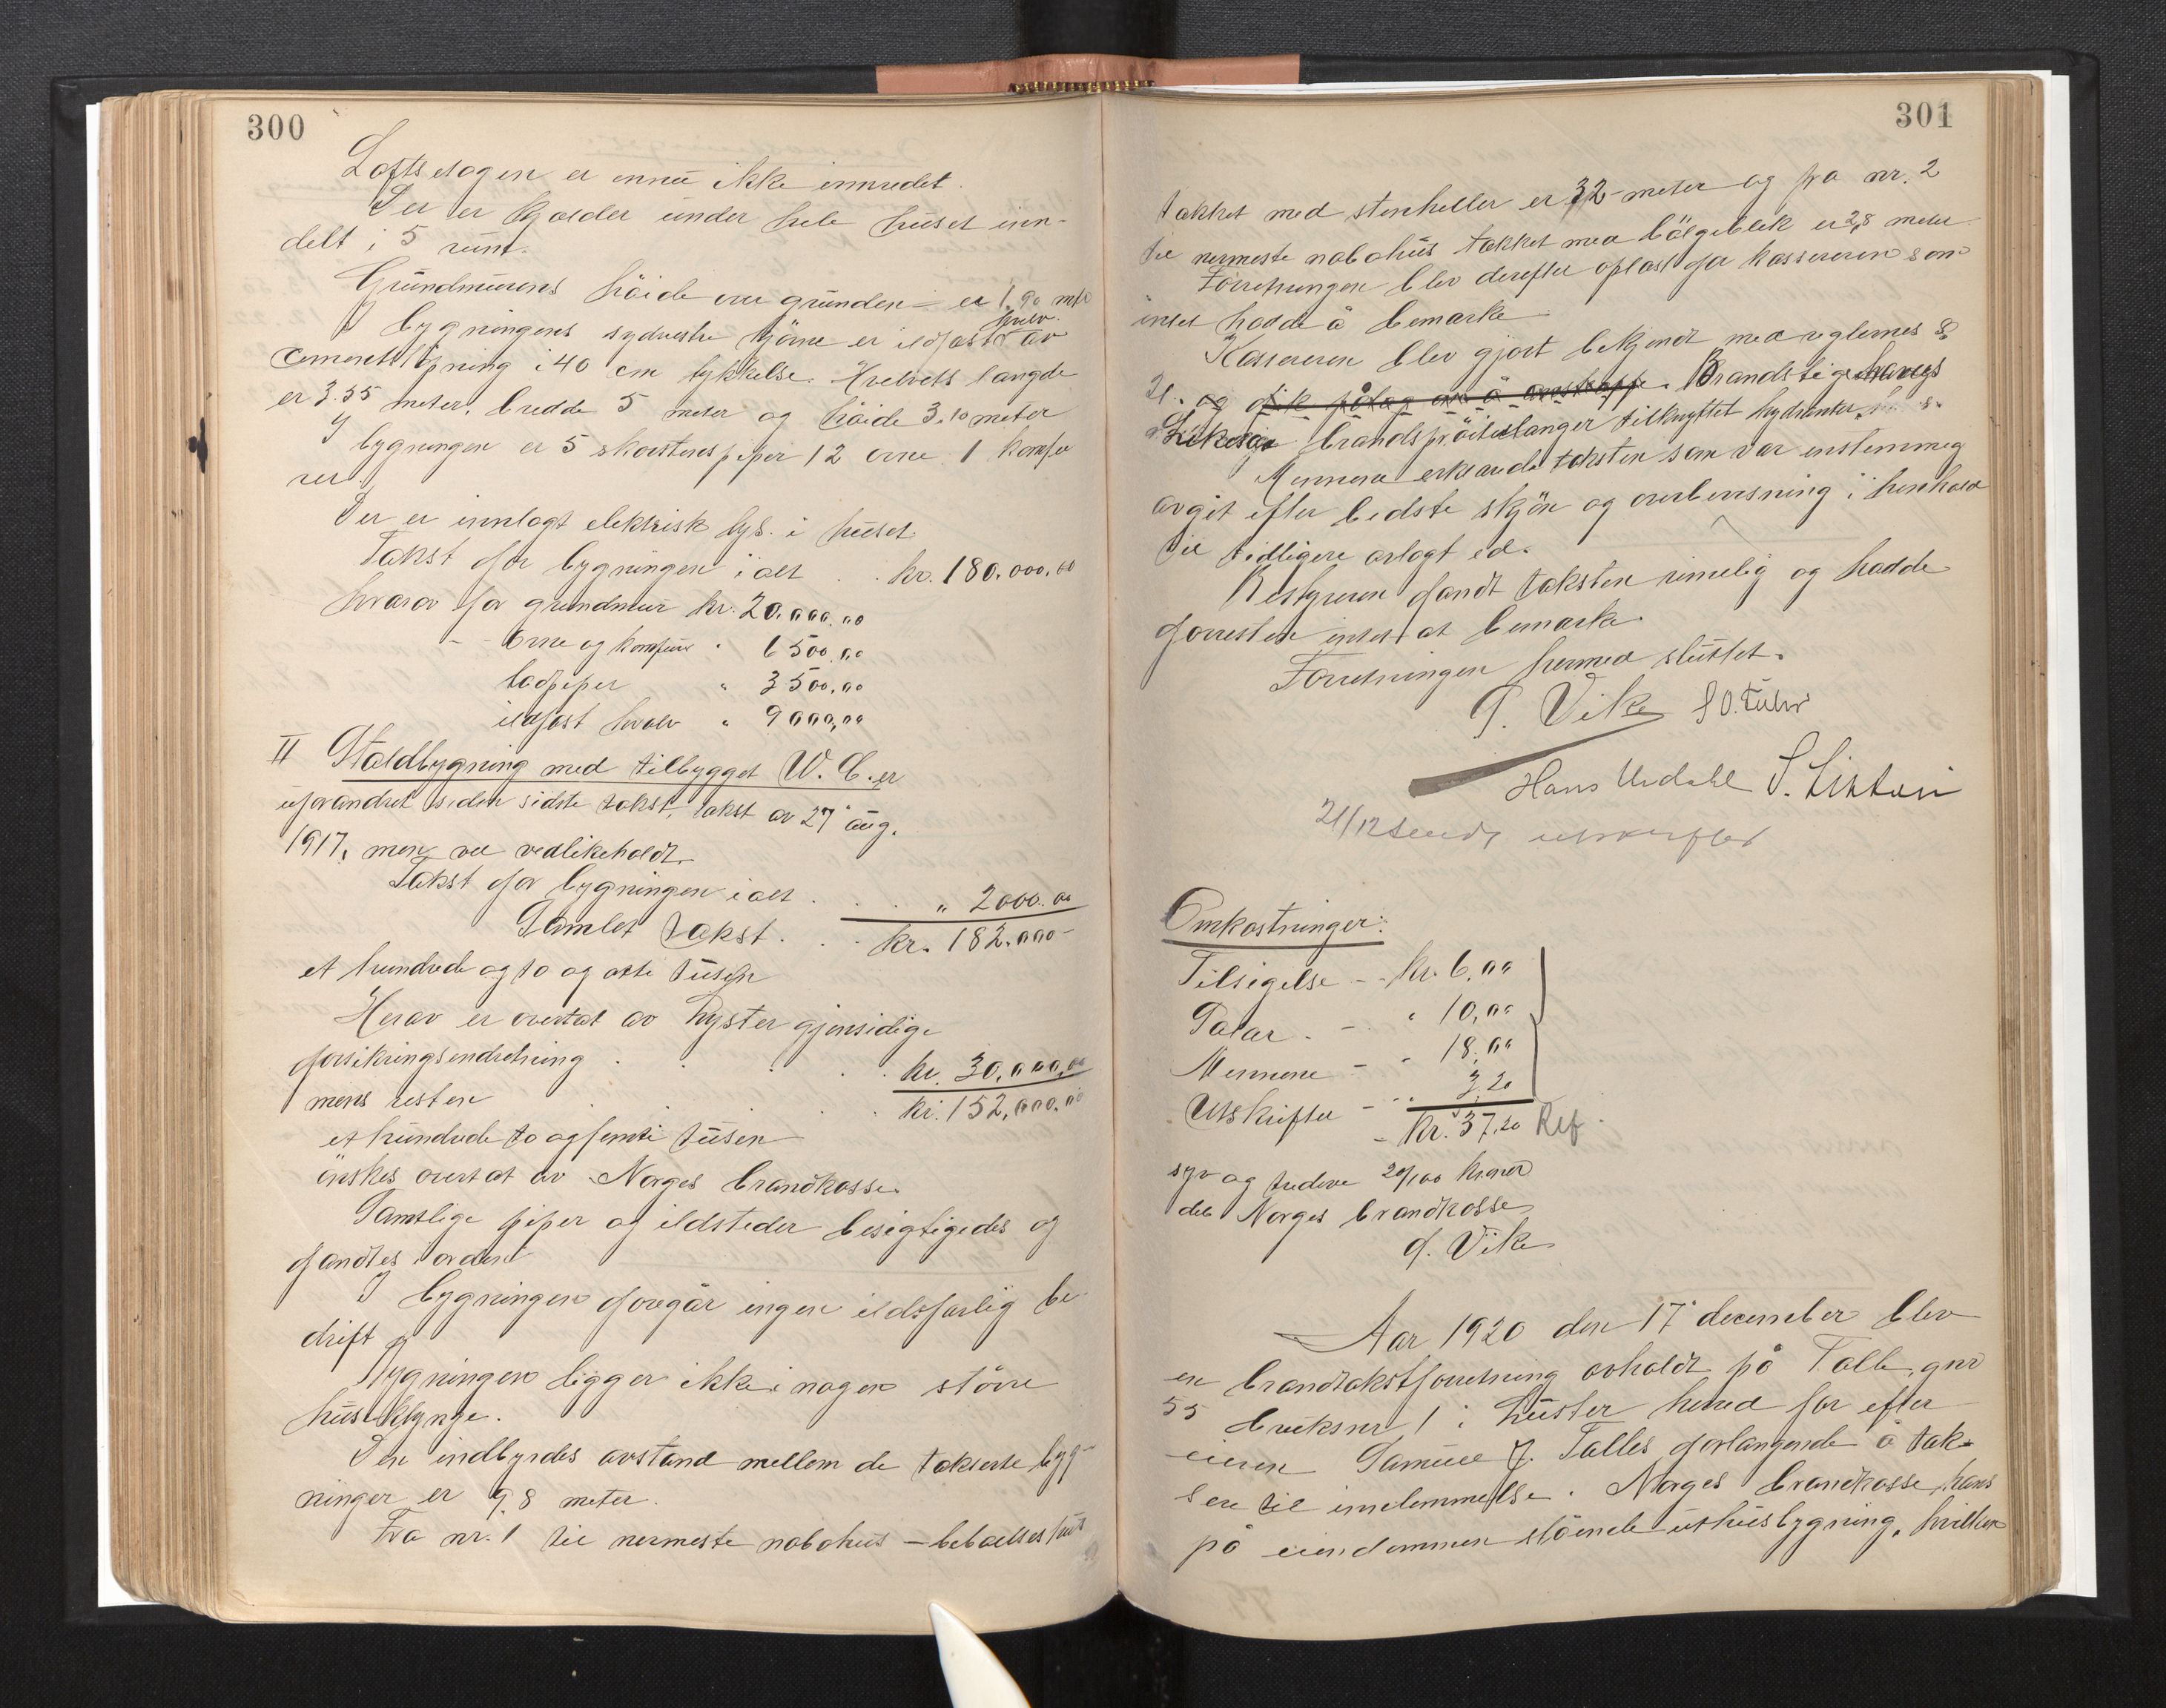 300
Loftsetagen er ennu ikke innredet.
Der er kjælder under hele huset inn-
delt i 5 rum.
Grundmurens höide over grunden er 1,90 mtr
I bygningens sydvestre hjörne er ildfast hvelv av
cementstöpning i 40 cm tykkelse. Hvelvets længde
er 3.55 meter, bredde 5 meter og höide 3.10 meter
I bygningen er 5 skorstenspiper 12 ovne 1 komfu
rer.
Der er innlagt elektrisk lys i huset.
Takst for bygningen i alt . . kr. 180.000,00
hvorav for grundmur kr. 20.000.00
- - ovne og komfur " 6500,00
tadpiper " 3500,00
ildfast hvælv " 9000,00
II Staldbygning med tilbygget W.C. er
uforandret siden sidste takst, takst av 27' aug.
1917, men vel vedlikeholdt.
Takst for bygningen i alt . . . " 2000.00
Samlet takst . . . kr. 182.000-
et hundrede og to og otti tusen
Herav er overtat av Lyster gjensidige
forsikringsindretning . . . . kr. 30,000,00
mens resten . . . . kr. 152,000.00
et hundrede to og femti tusen
önskes overtat av Norges brandkasse.
Samtlige piper og ildsteder besigtigedes og
fandtes i orden
I bygningen foregår ingen ildsfarlig be-
drift
Bygningen ligger ikke i nogen större
husklynge.
Den indbyrdes avstand mellem de takserte byg-
ninger er 9,8 meter.
Fra nr. 1 til nermeste nabohus - beboelseshus
301
takket med stenheller er 32 meter og fra nr. 2
til nermeste nabohus takket med bölgeblik er 28 meter
Forretningen blev derefter oplæst for kassereren som
intet hadde å bemærke
Kassereren blev gjort bekjendt med reglernes §
21. og fik pålæg om å anskaffe. Brandstige haves
Likeså brandspröiteslanger tilknyttet hydranter
Mennene erklærede taksten som var enstemmig
avgit efter bedste skjön og overbevisning i henhold
til tidligere avlagt ed.
Bestyreren fandt taksten rimelig og hadde
forresten intet at bemærke.
Forretningen hermed sluttet.
G. Vike
Hans Urdahl
21/12 sendt utskrifter
Omkostninger:
Tilsigelse - - kr. 6,00
Salar . - " 10,00
Mennene - " 18,00
Utskrifter - " 3,20
- kr. 37,20 Ref.
syv og tredive 20/100 kroner
deb Norges brandkasse
G. Vike
Aar 1920 den 17' december blev
en brandtakstforretning avholdt på Talle, gnr
55 bruksnr 1 i Luster herred for efter
eieren Samuel J. Talles forlangende å tak-
sere til innlemmelse i Norges brandkasse hans
på eiendommen stående uthusbygning, hvilken